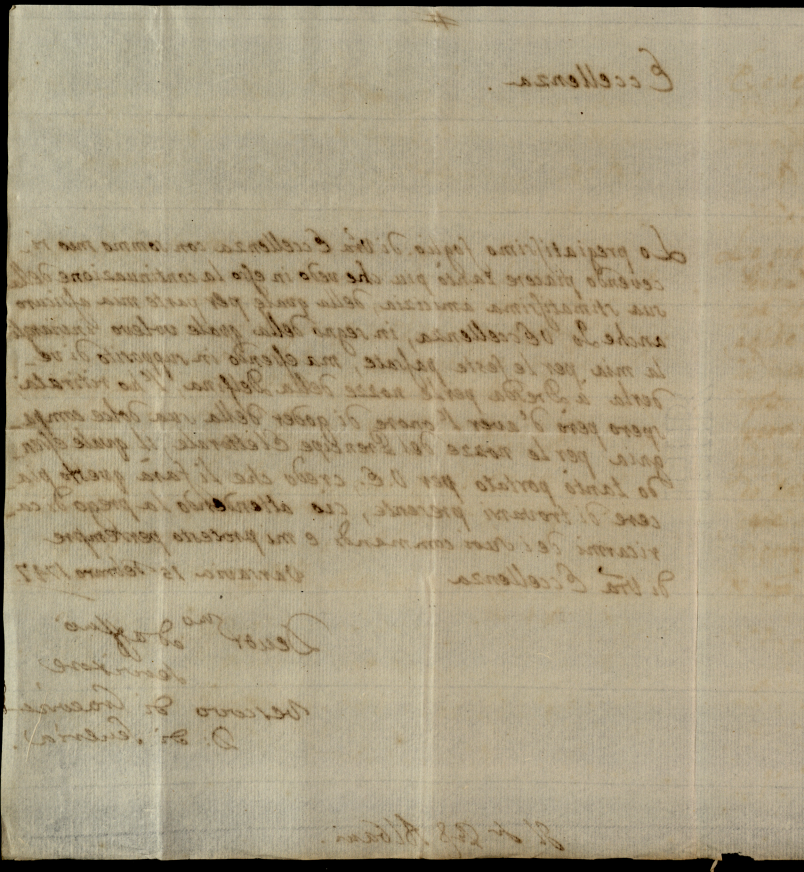 Eccellenza
Lo pregiatissimo foglio di Vrã Eccellenza con sommo mio ri-
cevendo piacere tanto più che vedo in esso la continuazione della
sua stimatissima amicizia, della quale per parte mia assicuro
anche Io V Eccellenza, in segno della quale volevo
la mia per le feste passate, ma essendo in supposito di ve-
derla à Dresda per le nozze della Delfina l'ho ritirata
spero però d'aver l'onore di goder della sua dolce compa-
gnia per le nozze del Prencipe Elettorale, il quale essen-
do tanto portato per V. E. credo che li farà questo pia-
cere di trovarsi presente, ciò attendendo la prego di ca-
ricarmi dei suoi commandi e mi protesto per sempre
di Vrã Eccellenza
Varsavia 15 Febraro 1747
Devot.mo ed aff.mo
servitore
Vescovo di Cracovia
D. di Severia.
Albani.